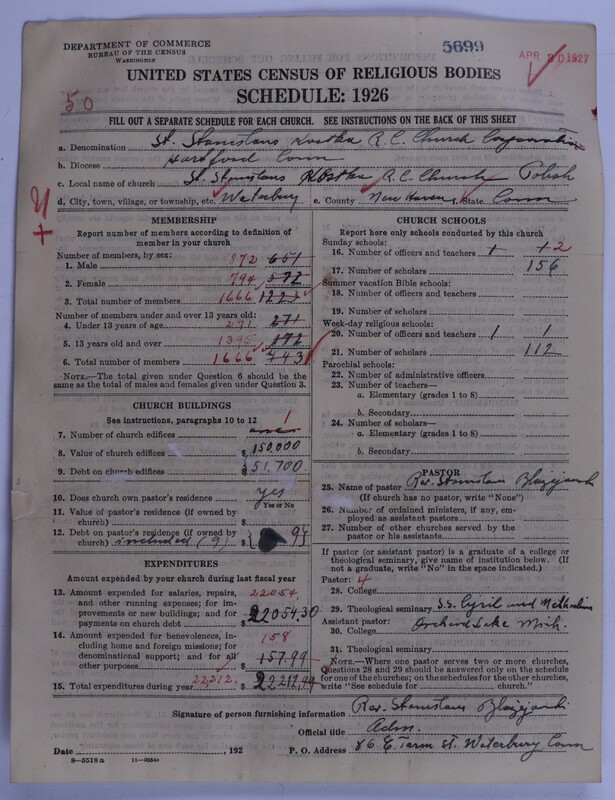 DEPARTMENT OF COMMERCE
BUREAU OF THE CENSUS
WASHINGTON
5699
APR 30 1927
50
UNITED STATES CENSUS OF RELIGIOUS BODIES
SCHEDULE: 1926
FILL OUT A SEPARATE SCHEDULE FOR EACH CHURCH. SEE INSTRUCTIONS ON THE BACK OF THIS SHEET
a. Denomination St. Stanislaus Kostka R.C. Church Corporation
b. Diocese Hartford Conn
c. Local name of church St. Stanislaus Kostka R.C. Church Polish
d. City, town, village, or township, etc. Waterbury e. County New Haven, State Conn
MEMBERSHIP
Report number of members according to definition of
member in your church
Number of members, by sex:
1. Male 872 651
2. Female 794 572
3. Total number of members 1666 1223
Number of members under and over 13 years old:
4. Under 13 years of age 271 271
5. 13 years old and over 1395 472
6. Total number of members 1666 743
NOTE.—The total given under Question 6 should be
the same as the total of males and females given under Question 3.
CHURCH BUILDINGS
See instructions, paragraphs 10 to 12
7. Number of church edifices 1
8. Value of church edifices $ 150,000
9. Debt on church edifices $ 51,700
10. Does church own pastor's residence yes
Yes or No
11. Value of pastor's residence (if owned by
church) $
12. Debt on pastor's residence (if owned by
church) included (9) $
EXPENDITURES
Amount expended by your church during last fiscal year
13. Amount expended for salaries, repairs, 22054.
and other running expenses; for im-
provements or new buildings; and for
payments on church debt $ 22054.30
14. Amount expended for benevolences, 158
including home and foreign missions; for
denominational support; and for all
other purposes $ 157.99
15. Total expenditures during year 22,212. $ 22212.99
CHURCH SCHOOLS
Report here only schools conducted by this church
Sunday schools:
16. Number of officers and teachers 1 1 2
17. Number of scholars 156
Summer vacation Bible schools:
18. Number of officers and teachers
19. Number of scholars
Week-day religious schools:
20. Number of officers and teachers 1 1
21. Number of scholars 112
Parochial schools:
22. Number of administrative officers
23. Number of teachers—
a. Elementary (grades 1 to 8)
b. Secondary
24. Number of scholars—
a. Elementary (grades 1 to 8)
b. Secondary
PASTOR
25. Name of pastor Rev. Stanislaus
(If church has no pastor, write "None")
26. Number of ordained ministers, if any, em-
ployed as assistant pastors
27. Number of other churches served by the
pastor or his assistants
If pastor (or assistant pastor) is a graduate of a college or
theological seminary, give name of institution below. (If
not a graduate, write "No" in the space indicated.)
Pastor: 4
28. College
29. Theological seminary S.S. Cyril and Methodius
Assistant pastor:
30. College Orchard Lake Mich.
31. Theological seminary
NOTE.—Where one pastor serves two or more churches,
Questions 28 and 29 should be answered only on the schedule
for one of the churches; on the schedules for the other churches,
write "See schedule for church."
Signature of person furnishing information Rev. Stanislaus
Official title Adm.
Date , 192 P. O. Address 86 E. Farm St. Waterbury Conn
8—5518 a 11—9554